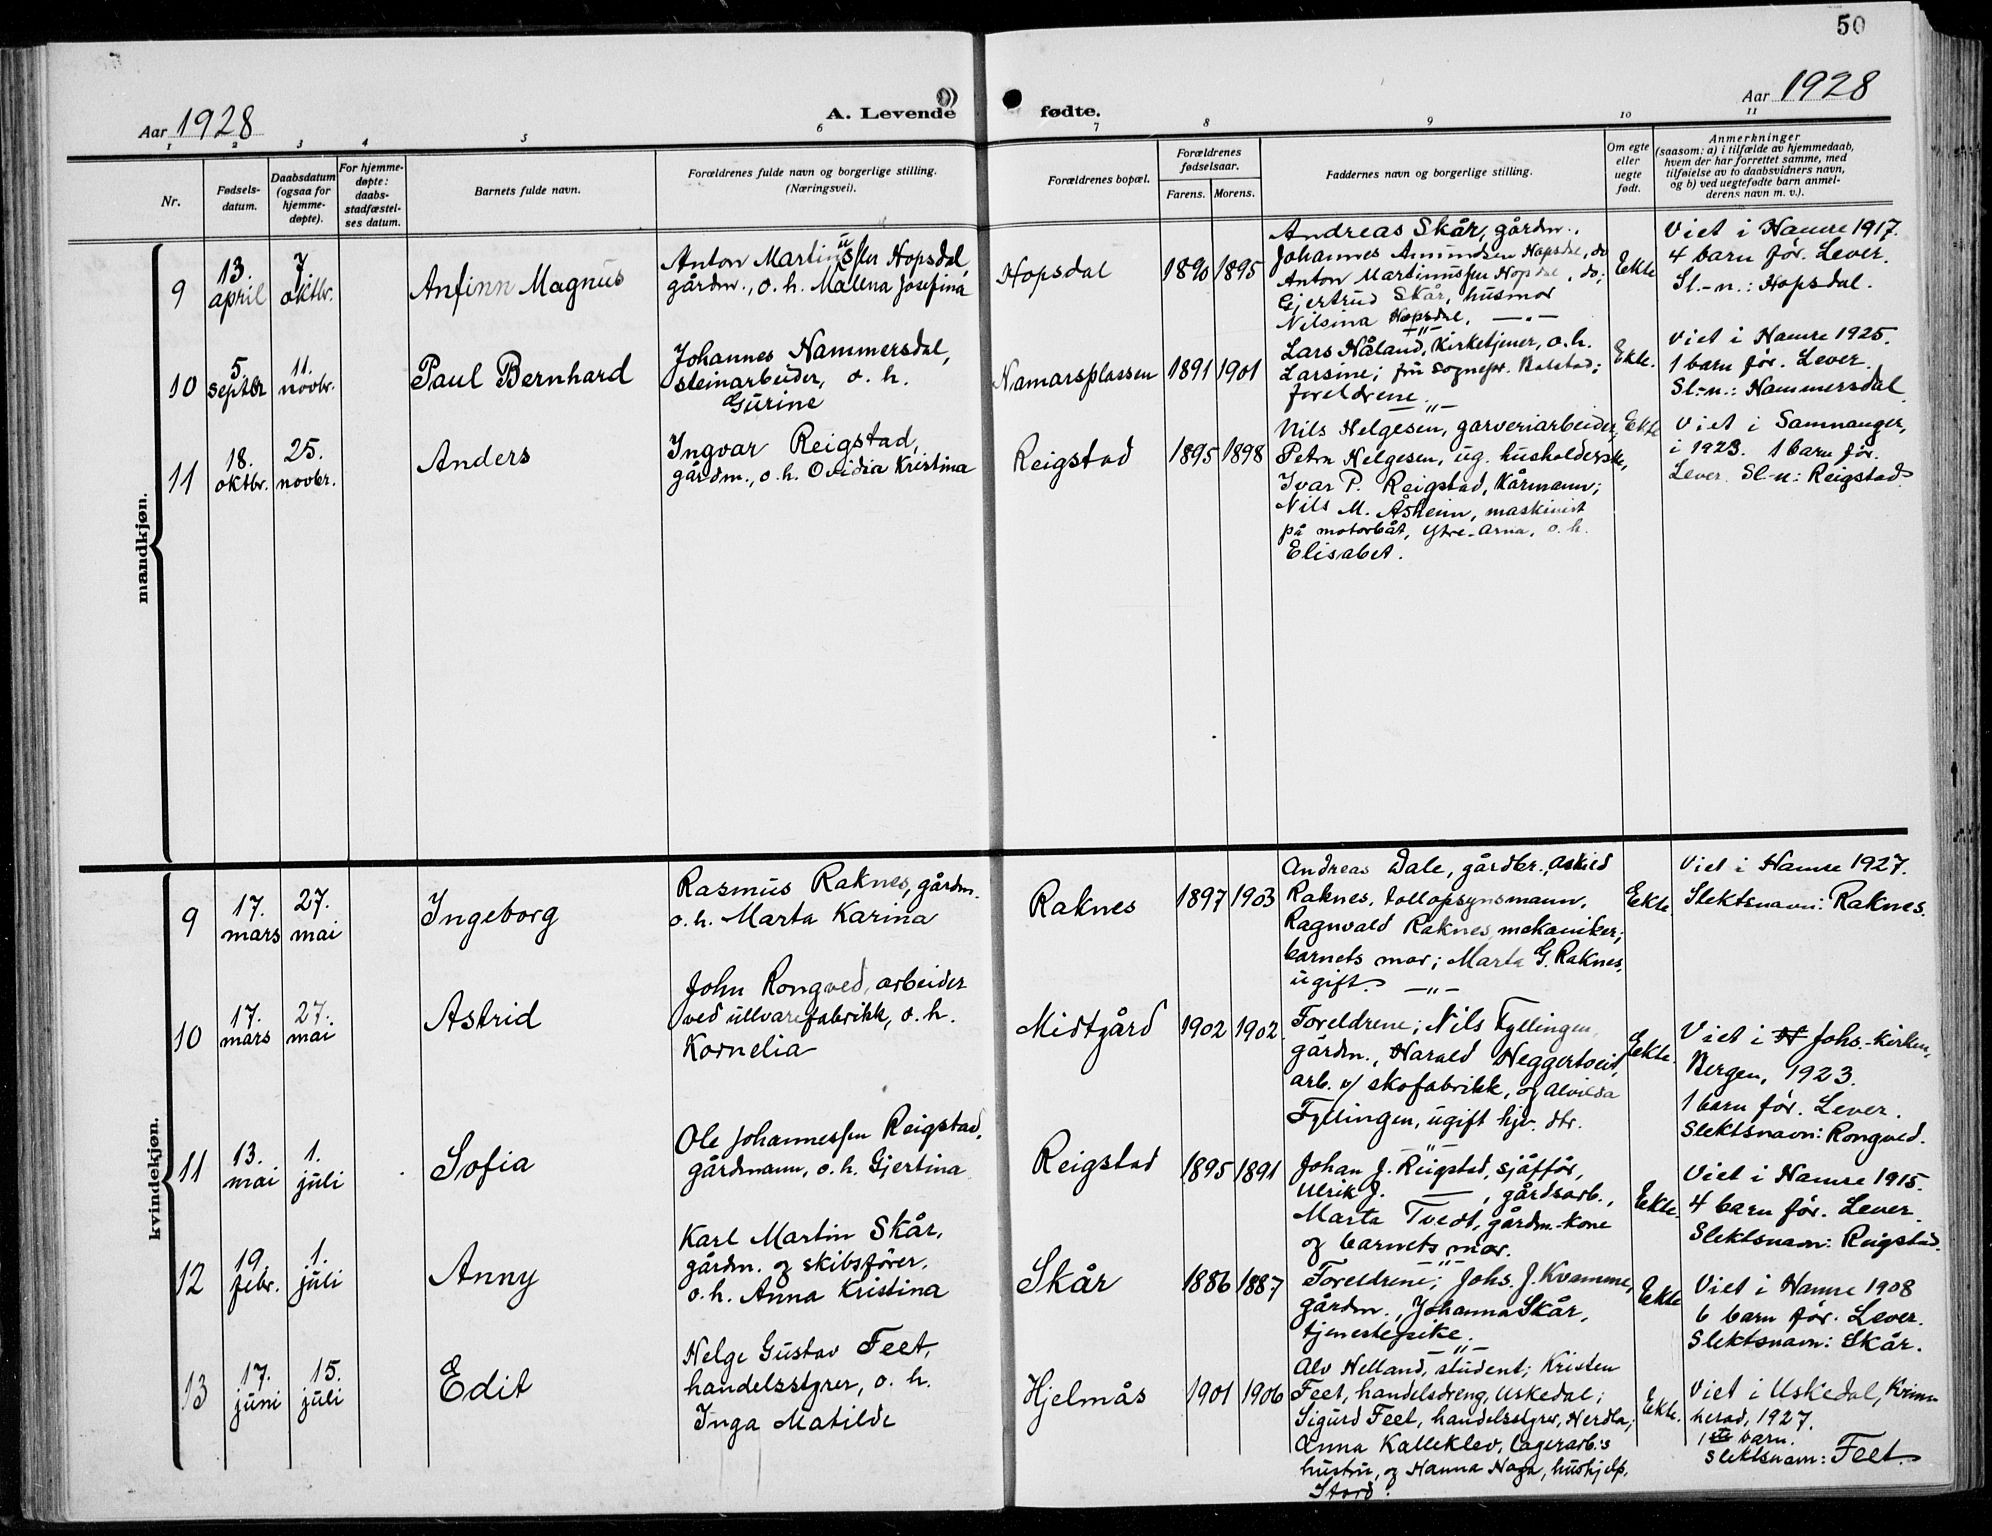 50
Aar 1928
A. Levende
fødte.
Aar 1928
1 2 3 4 5 6 7 8 9 10 11
Nr.
Fødsels-
datum.
Daabsdatum
(ogsaa for
hjemme-
døpte).
For hjemme-
døpte:
daabs-
stadfæstel-
ses datum.
Barnets fulde navn.
Forældrenes fulde navn og borgerlige stilling.
(Næringsvei).
Forældrenes bopæl.
Forældrenes
fødselsaar.
Farens. Morens.
Faddernes navn og borgerlige stilling.
Om egte
eller
uegte
født.
Anmerkninger
(saasom: a) i tilfælde av hjemmedaab,
hvem der har forrettet samme, med
tilføielse av to daabsvidners navn,
og b) ved uegtefødte barn anmel-
derens navn m. v.).
mandkjøn.
9
13.
april
7
oktbr.
Anfinn Magnus
Anton Martinussen Hopsdal,
gårdm., o. h. Malena Josefina
Hopsdal
1890 1895
Andreas Skår, gårdm.,
Johannes Amundsen Hopsdal, do
Anton Martinussen Hopsdal, do;
Gjertrud Skår, husmor
Nilsina Hopsdal, —"—
Ekte
Viet i Hamre 1917.
4 barn før. Lever.
Sl.-n.: Hopsdal.
10
5.
septbr
11.
novbr.
Paul Bernhard
Johannes Hammersdal,
steinarbeider, o. h.
Gurine
Hamarsplassen
1891 1901
Lars Håland, Kirketjener, o.h.
Larsine; fru sognepr. Balstad;
foreldrene.
Ekte.
Viet i Hamre 1925.
1 barn før. Lever.
Sl.-n.: Hammersdal
11
18.
oktbr.
25.
novbr.
Anders
Ingvar Reigstad,
gårdm., o. h. Ovidia Kristina
Reigstad
1895 1898
Nils Helgesen, garveriarbeider,
Petra Helgesen, ug. husholderske,
Ivar P. Reigstad, Kårmann;
Nils M. Åsheim, maskinist
på motorbåt, Ytre-Arna, o. h.
Elisabet.
Ekte
Viet i Samnanger,
i 1923. 1 barn før.
Lever. Sl-n: Reigstad
kvindekjøn.
9
17.
mars
27.
mai
Ingeborg
Rasmus Raknes, gårdm.
o. h. Marta Karina
Raknes
1897 1903
Andreas Dale, gårdbr., Askild
Raknes, tollopsynsmann,
Ragnvald Raknes, mekaniker;
barnets mor; Marta G. Raknes,
ugift. —"—
Ekte.
Viet i Hamre 1927.
Slektsnavn: Raknes.
10
17.
mars
27.
mai
Astrid
John Rongved, arbeider
ved ullvarefabrikk, o. h.
Kornelia
Midtgård
1902 1902
Foreldrene; Nils Fyllingen,
gårdm., Harald Heggertveit,
arb. v/ skofabrikk, og Alvilda
Fyllingen, ugift hjv. dtr.
Ekte.
Viet i H Johs.-kirken,
Bergen, 1923.
1 barn før. Lever.
Slektsnavn: Rongved.
11
13.
mai
1.
juli
Sofia
Ole Johannessen Reigstad,
gårdmann, o. h. Gjertina
Reigstad
1895 1891
Johan J. Reigstad, sjåffør,
Ulrik J. —"—, gårdsarb.,
Marta Tvedt, gårdm.-kone
og barnets mor.
Ekte.
Viet i Hamre 1915.
4 barn før. Lever.
Slektsnavn: Reigstad.
12
19.
febr.
1.
juli
Anny
Karl Martin Skår,
gårdm. og skibsfører,
o. h. Anna Kristina
Skår
1886 1887
Foreldrene; Johs. J. Kvamme,
gårdm., Johanna Skår,
tjenestepike.
Ekte
Viet i Hamre 1908
6 barn før. Lever.
Slektsnavn: Skår.
13
17.
juni
15.
juli
Edit
Helge Gustav Feet,
handelsstyrer, o. h.
Inga Matilde
Hjelmås
1901 1906
Alv Helland, student; Kristen
Feet, handelsdreng, Uskedal;
Sigurd Feet, handelsstyrer, Herdla;
Anna Kalleklev, lagerarb.s
hustru, og Hanna Haga, hushjelp,
Stord.
Ekte.
Viet i Uskedal, Kvinn-
herad, 1927.
1ste barn.
Slektsnavn: Feet.